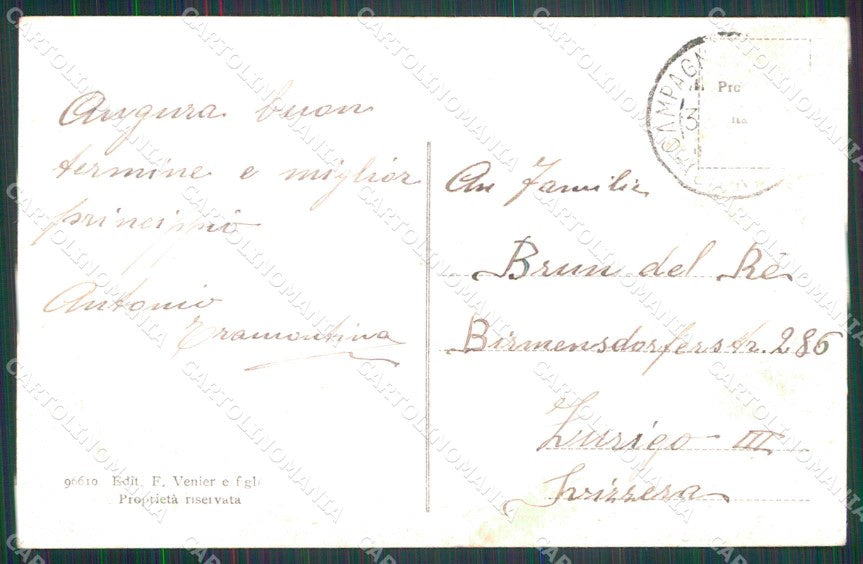 Augura buon
termine e miglior
princippio
Antonio
Tramontina
96610 Edit. F. Venier e figli
Proprietà riservata
CAMPAGNA
Pro
An Familie
Brun del Re
Birmensdorferstr. 286
Zurigo III
Svizzera
CARTOLINOMANIA